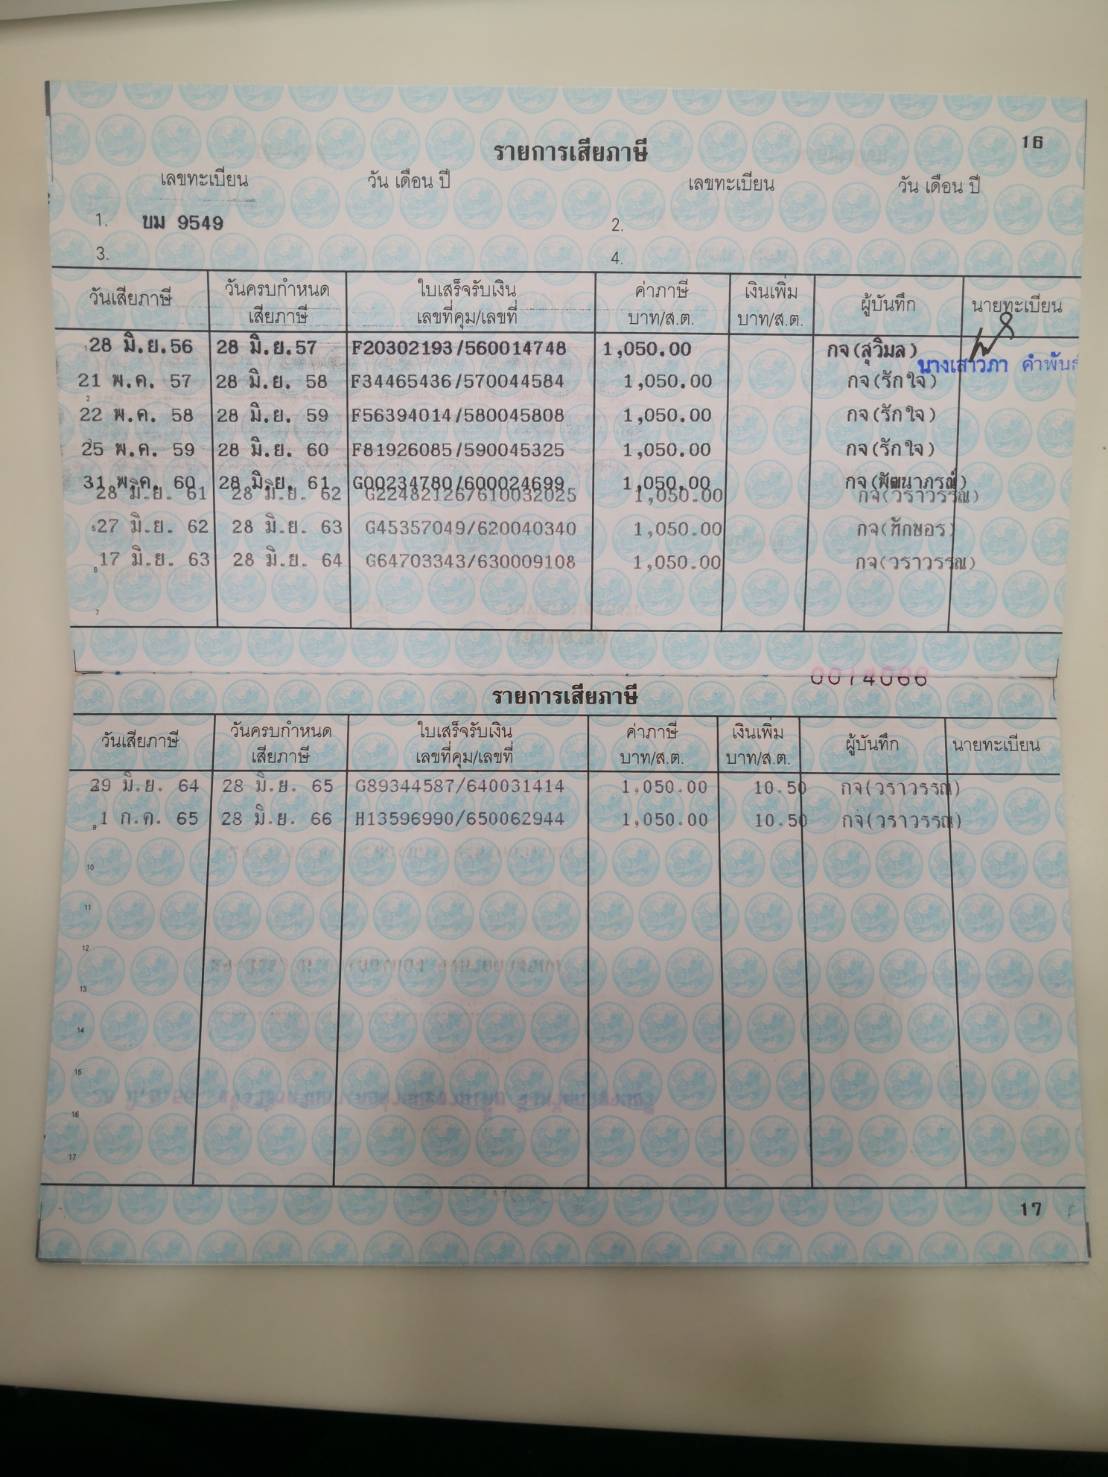 16
รายการเสียภาษี
เลขทะเบียน วัน เดือน ปี เลขทะเบียน วัน เดือน ปี
1. บม 9549 2.
3. 4.
วันเสียภาษี วันครบกำหนด เสียภาษี ใบเสร็จรับเงิน เลขที่คุม/เลขที่ ค่าภาษี บาท/ส.ต. เงินเพิ่ม บาท/ส.ต. ผู้บันทึก นายทะเบียน
28 มิ.ย.56 28 มิ.ย.57 F20302193/560014748 1,050.00 กจ(สุวิมล)
นางเสาวภา คำพันธ์
21 พ.ค. 57 28 มิ.ย. 58 F34465436/570044584 1,050.00 กจ(รักใจ)
22 พ.ค. 58 28 มิ.ย. 59 F56394014/580045808 1,050.00 กจ(รักใจ)
25 พ.ค. 59 28 มิ.ย. 60 F81926085/590045325 1,050.00 กจ(รักใจ)
31 พ.ค. 60 28 มิ.ย. 61 G00234780/600024699 1,050.00
28 มิ.ย. 61 28 มิ.ย. 62 G22482126/610032025 1,050.00 กจ(วราวรรณ)
27 มิ.ย. 62 28 มิ.ย. 63 G45357049/620040340 1,050.00 กจ(ทักษอร)
17 มิ.ย. 63 28 มิ.ย. 64 G64703343/630009108 1,050.00 กจ(วราวรรณ)
7
0014066
รายการเสียภาษี
วันเสียภาษี วันครบกำหนด เสียภาษี ใบเสร็จรับเงิน เลขที่คุม/เลขที่ ค่าภาษี บาท/ส.ต. เงินเพิ่ม บาท/ส.ต. ผู้บันทึก นายทะเบียน
29 มิ.ย. 64 28 มิ.ย. 65 G89344587/640031414 1,050.00 10.50 กจ(วราวรรณ)
9 1 ก.ค. 65 28 มิ.ย. 66 H13596990/650062944 1,050.00 10.50 กจ(วราวรรณ)
10
11
12
13
14
15
16
17
17